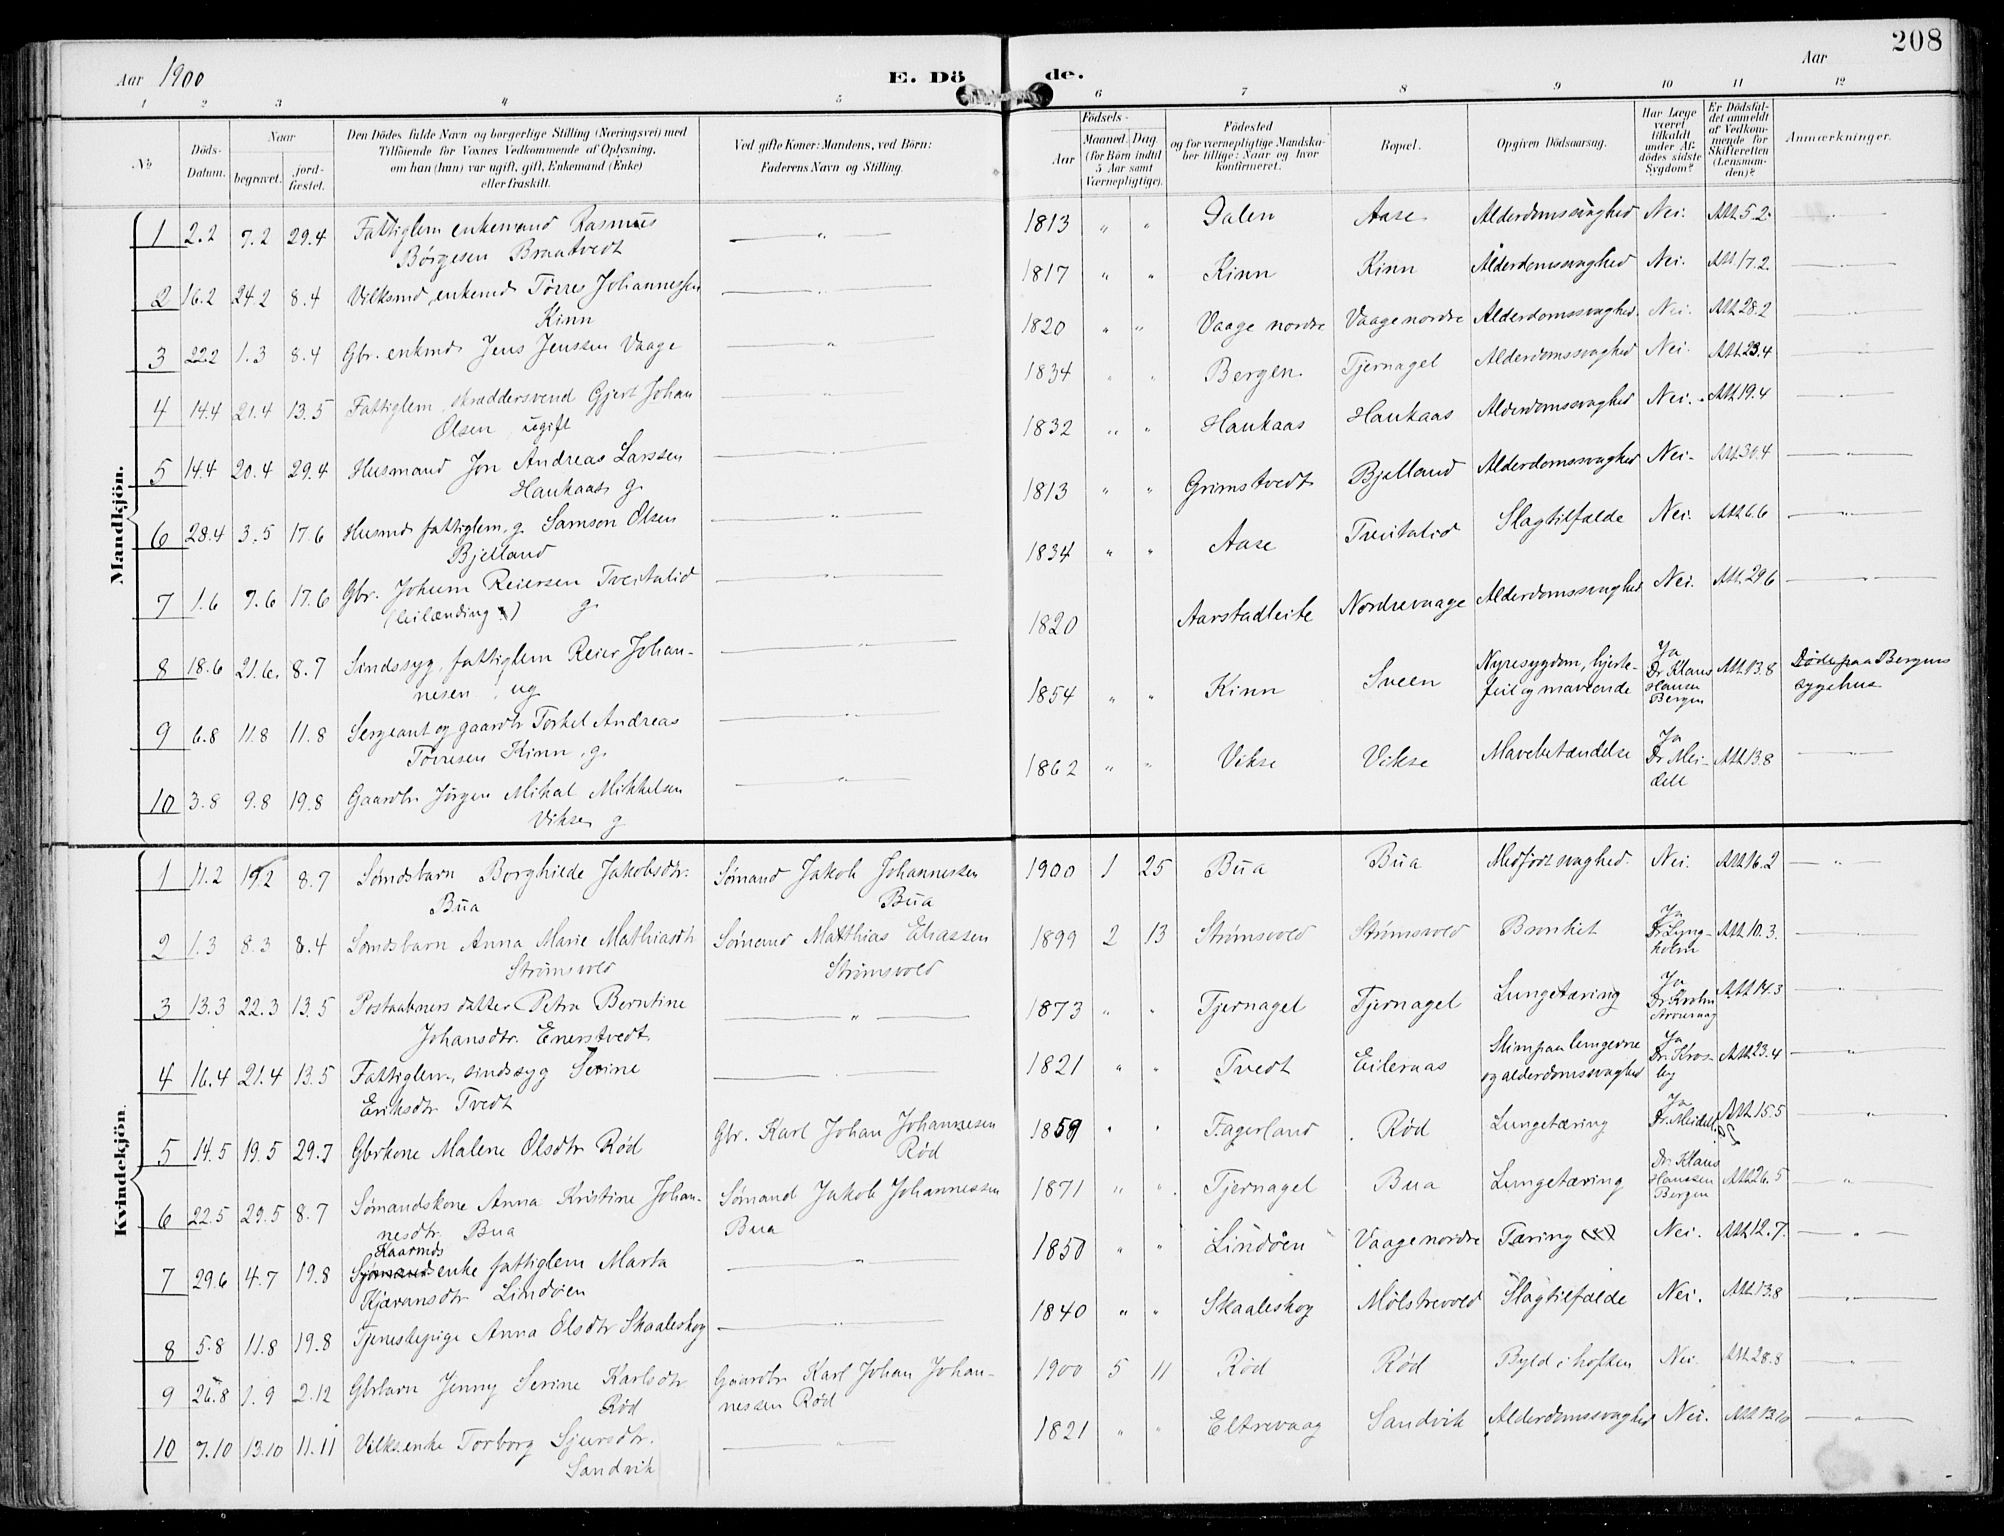 208
Aar 1900 E. Dö de. Aar
1 2 3 4 5 6 7 8 9 10 11 12
No
Döds-Datum.
Naar
begravet.
jord-fæstet.
Den Dödes fulde Navn og borgerlige Stilling (Næringsvei) med
Tilföiende for Voxnes Vedkommende af Oplysning,
om han (hun) var ugift, gift, Enkemand (Enke)
eller fraskilt.
Ved gifte Koner: Mandens, ved Börn:
Faderens Navn og Stilling.
Födsels-
Aar
Maaned. Dag.
(for Börn indtil
5 Aar samt
Værnepligtige).
Födested
og for værnepligtige Mandska-
ber tillige: Naar og hvor
konfirmeret.
Bopæl.
Opgiven Dödsaarsag.
Har Læge
været
tilkaldt
under Af-
dödes sidste
Sygdom?
Er Dödsfal-
det anmeldt
af Vedkom-
mende for
Skifteretten
(Lensman-
den)?
Anmærkninger.
Mandkjön.
1 2.2 7.2 29.4 Fattiglem enkemand Rasmus — " — 1813 " " Dalen Aase Alderdomssvaghed Nei. Att. 5.2. — " —
Børgesen Braatvedt
2 16.2 24.2 8.4 Vilksmd, enkemd Tørres Johannessen — " — 1817 " " Kinn Kinn Alderdomssvaghed Nei. Att. 17.2. — " —
Kinn
3 22.2 1.3 8.4 Gbr. enkmd Jens Jenssen Vaage — " — 1820 " " Vaage nordre Vaage nordre Alderdomssvaghed Nei. Att. 28.2 — " —
4 14.4 21.4 13.5 Fattiglem, skræddersvend Gjert Johan — " — 1834 " " Bergen Tjernagel Alderdomssvaghed Nei. Att. 23.4 — " —
Olsen, ugift
5 14.4 20.4 29.4 Husmand Jon Andreas Larssen — " — 1832 " " Haukaas Haukaas Alderdomssvaghed Nei. Att. 19.4 — " —
Haukaas g.
6 28.4 3.5 17.6 Husmd fattiglem, g. Samson Olsen — " — 1813 " " Grimstvedt Bjelland Alderdomssvaghed Nei. Att. 30.4 — " —
Bjelland
7 1.6 7.6 17.6 Gbr. Johum Reiersen Tveitalid — " — 1834 " " Aase Tveitalid Slagtilfælde Nei. Att. 6.6 — " —
(leilænding) g.
8 18.6 21.6. 8.7 Sindssyg, fattiglem Reier Johan- — " — 1820 Aarstadleite Nordrevaage Alderdomssvaghed Nei. Att. 29.6 — " —
nesen ug
9 6.8 11.8 11.8 Sergeant og gaardbr Torkel Andreas — " — 1854 " " Kinn Sveen Nyresygdom, hjerte-
feil og maveonde Ja
Dr. Klaus
Hansen
Bergen Att. 13.8 Døde paa Bergens
sygehus
Tørresen Kinn, g.
10 3.8 9.8 19.8 Gaardbr Jørgen Mikal Mikkelsen — " — 1862 " " Vikse Vikse Mavebetændelse Ja
Dr. Mei-
dell Att. 13.8 — " —
Vikse, g
Kvindekjön.
1 11.2 19.2 8.7 Sømdsbarn Borghilde Jakobsdtr. Sømand Jakob Johannessen 1900 1 25 Bua Bua Medfødt svaghed. Nei. Att. 16.2 — " —
Bua Bua
2 1.3 8.3 8.4 Sømdsbarn Anna Marie Mathiasdtr Sømand Matthias Eliassen 1899 2 13 Strømsvold Strømsvold Bronkit Ja
Dr. Lyng-
holm Att. 10.3. — " —
Strømsvold Strømsvold
3 13.3 22.3 13.5 Postaabners datter Petra Berntine — " — 1873 " " Tjernagel Tjernagel Lungetæring Ja
Dr. Krohn
Att. 14.3 — " —
Johansdtr. Enerstvedt
4 16.4 21.4 13.5 Fattiglem, sindssyg Serine — " — 1821 " " Tvedt Eileraas Slim paa lungerne
og alderdomssvaghed Ja
Dr. Kros-
by Att. 23.4 — " —
Eriksdtr Tvedt
5 14.5 19.5 29.7 Gbrkone Malene Olsdtr Rød Gbr. Karl Johan Johannesen 1859 " " Fagerland Rød Lungetæring Ja
Dr. Meidell Att. 15.5 — " —
Rød
6 22.5 29.5 8.7 Sømandskone Anna Kristine Johan- Sømand Jakob Johannessen 1871 " " Tjernagel Bua Lungetæring Ja
Dr. Klaus
Hanssen
Bergen Att. 26.5 — " —
nesdtr. Bua Bua
7 29.6 4.7 19.8 Kaarmds
Sømandsenke fattiglem Marta — " — 1850 " " Lindøen Vaage nordre Tæring Nei. Att. 12.7. — " —
Kjæransdtr Lindøen
8 5.8 11.8 19.8 Tjenestepige Anna Olsdtr Skaaleskog — " — 1840 " " Skaaleskog Mølstrevold Slagtilfælde Nei. Att. 13.8 — " —
9 26.8 1.9 2.12 Gbrbarn Jenny Serine Karlsdtr Gaardbr Karl Johan Johan- 1900 5 11 Rød Rød Byld i hoften Nei. Att. 28.8 — " —
Rød nessen Rød
10 7.10 13.10 11.11 Vilksenke Torborg Sjursdtr. — " — 1821 " " Eltrevaag Sandvik Alderdomssvaghed Nei. Att. 13.10 — " —
Sandvik